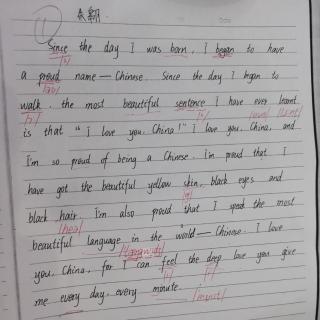 ①
Since the day I was born, I began to have
a proud name — Chinese. Since the day I began to
walk, the most beautiful sentence I have ever learnt
is that "I love you, China!" I love you, China, and
I'm so proud of being a Chinese. I'm proud that I
have got the beautiful yellow skin, black eyes and
black hair. I'm also proud that I speak the most
beautiful language in the world — Chinese. I love
you, China, for I can feel the deep love you give
me every day, every minute.